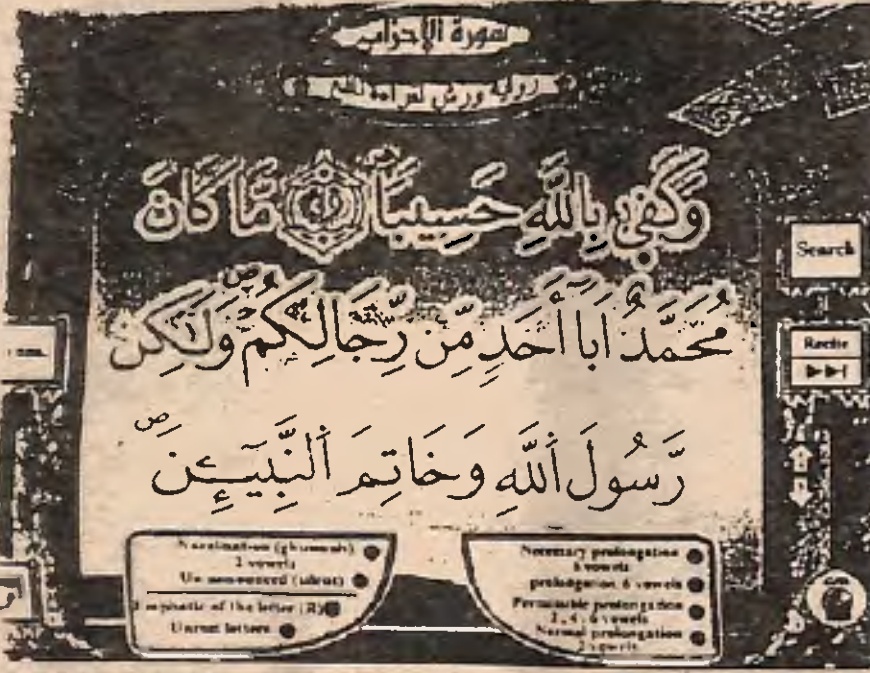 سورة الأحزاب
رواية ورش لقراءة نافع
وَكَفٜىٰ بِاللَّهِ حَسِيباً مَّا كَانَ
مُحَمَّدٌ اَبَآ أَحَدٍ مِّن رِّجَالِكُمْ وَلَٰكِن
رَّسُولَ اَ۬للَّهِ وَخَاتِمَ اَ۬لنَّبِيٓـِٕنَ
Search
Recite
Nazalization (ghunnah)
2 vowels
Un announced (silent)
Emphatic of the letter (R)
Unrest letters
Necessary prolongation
6 vowels
prolongation 6 vowels
Permissible prolongation
2, 4, 6 vowels
Normal prolongation
2 vowels